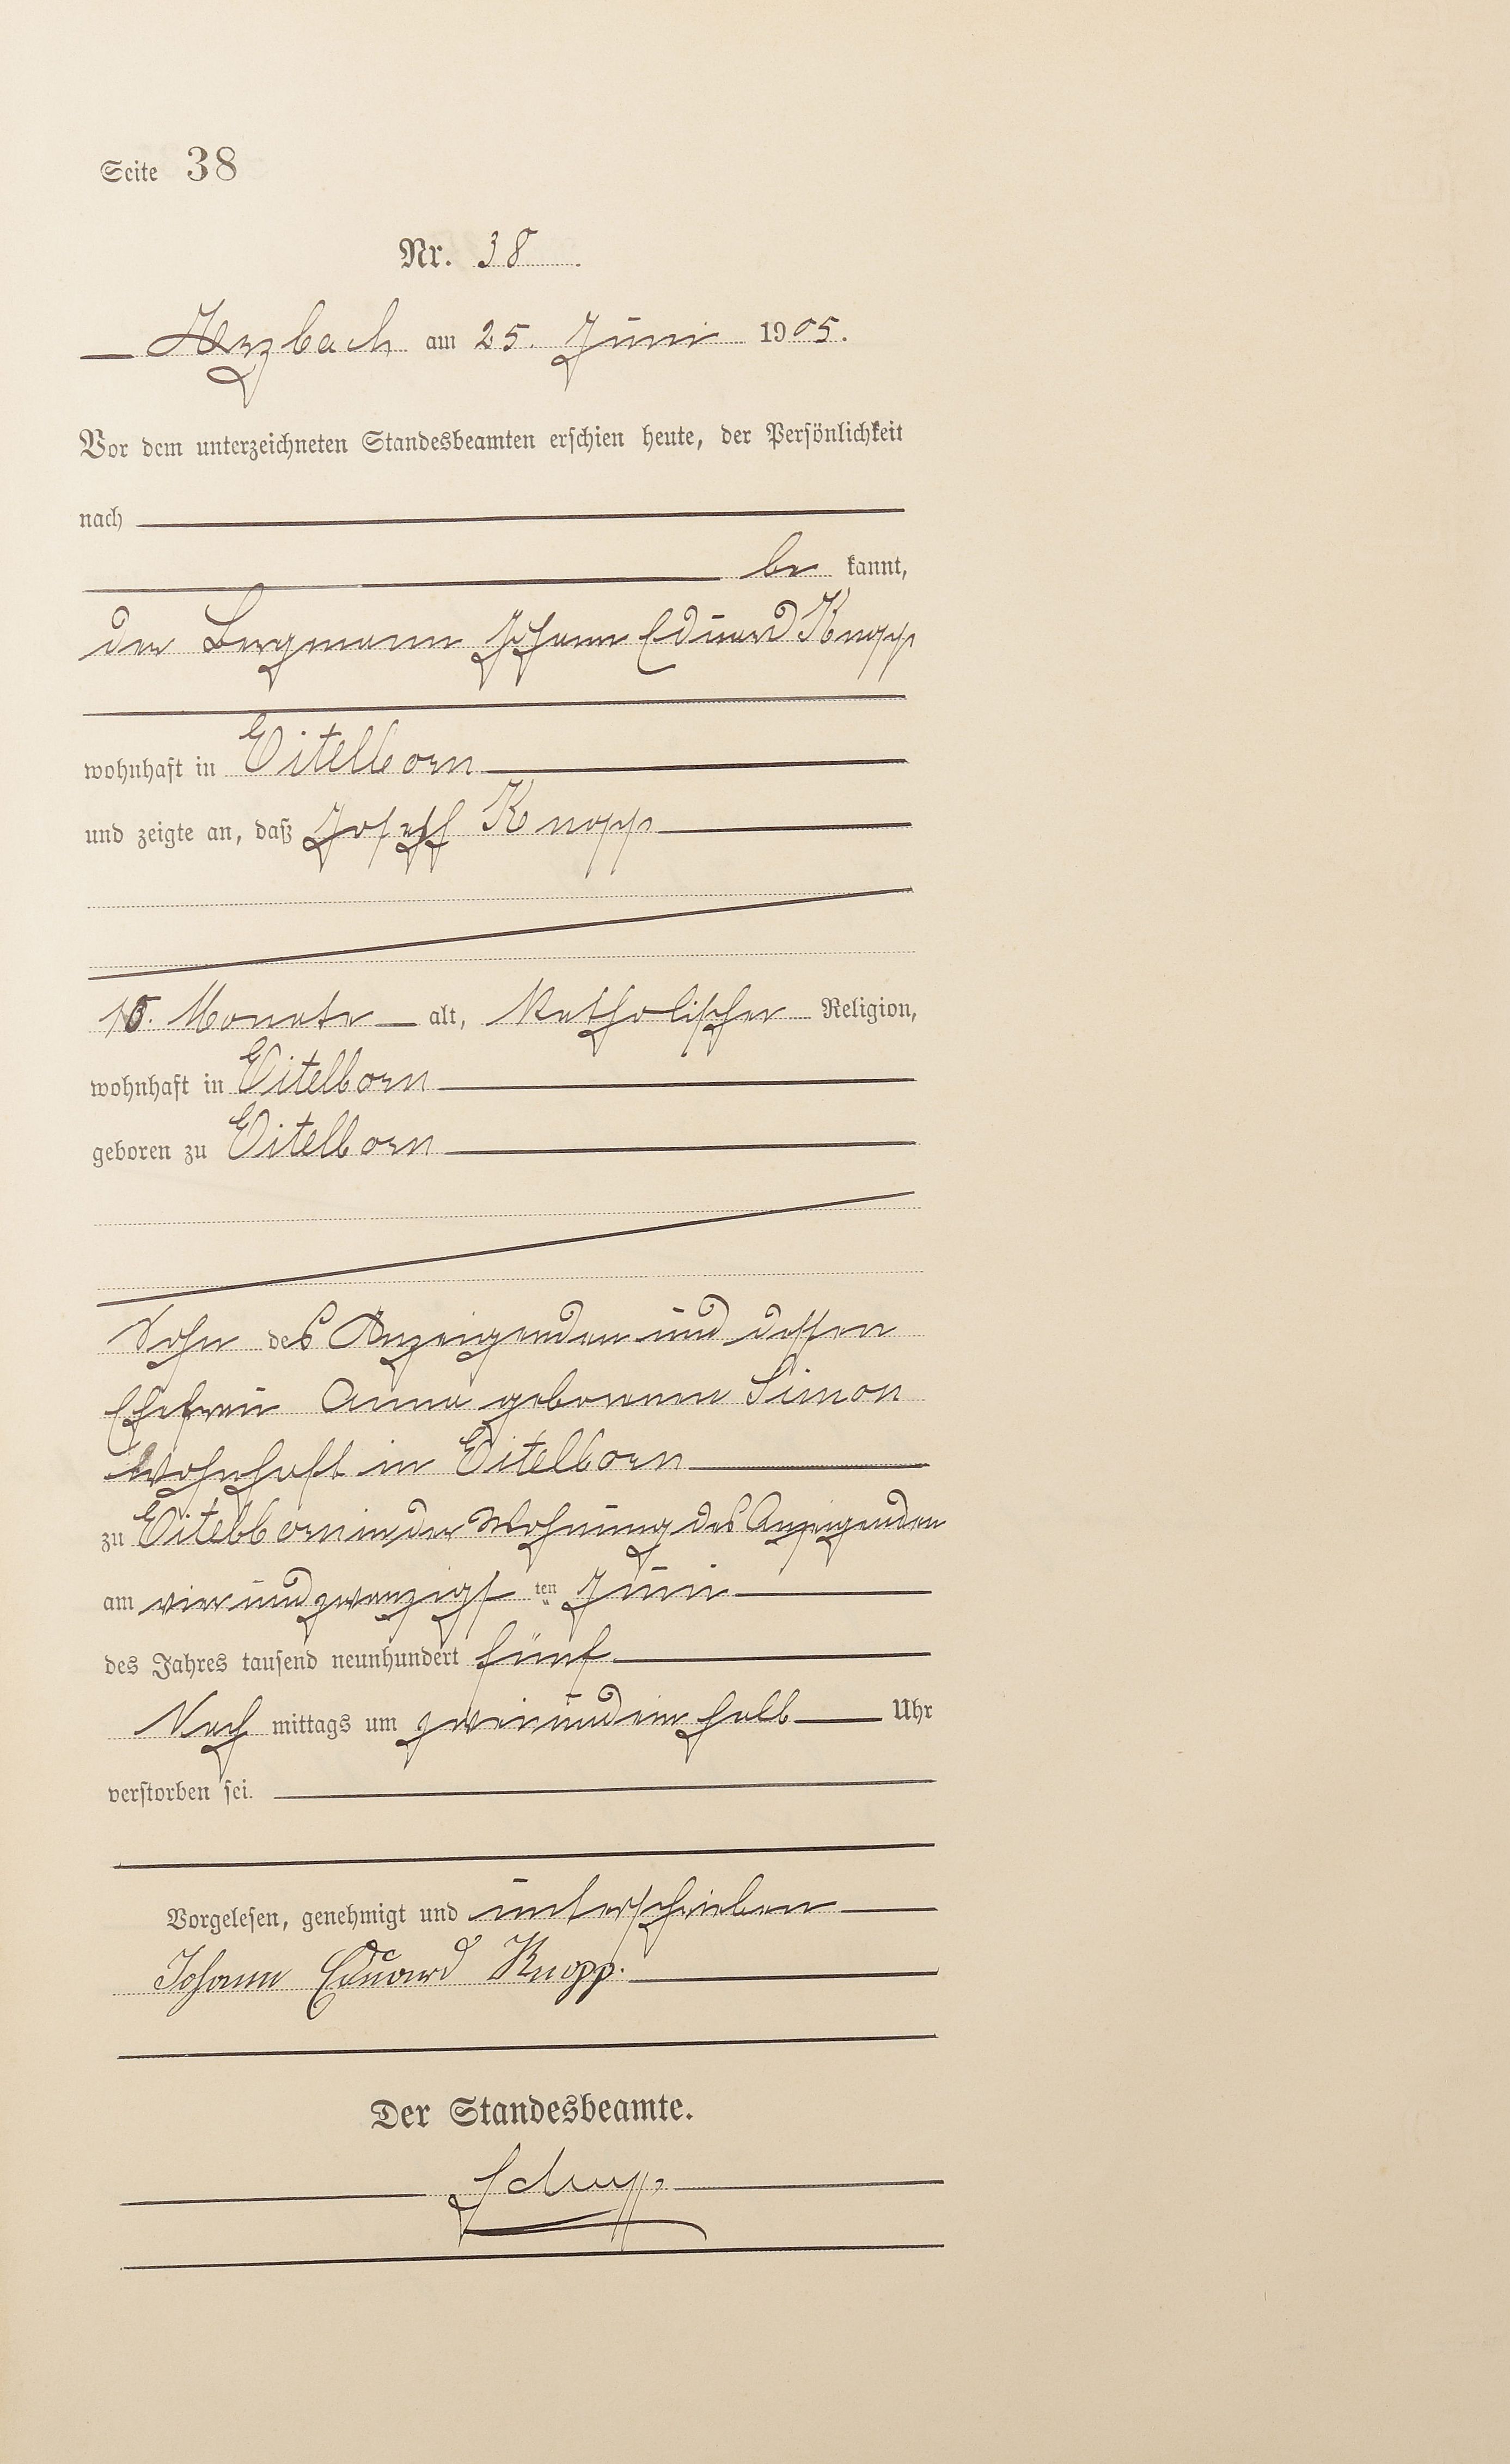 Seite 38
Nr. 38.
Arzbach am 25. Juni 1905.
Vor dem unterzeichneten Standesbeamten erschien heute, der Persönlichkeit
nach
be kannt,
der Bergmann Johann Eduard Knopp
wohnhaft in Eitelborn
und zeigte an, daß Joseph Knopp
Monate alt, katholischer Religion,
wohnhaft in Eitelborn
geboren zu Eitelborn
Sohn des Anzeigenden und dessen
Ehefrau Anna geborenen Simon
wohnhaft in Eitelborn
zu Eitelborn in der Wohnung des Anzeigenden
am vierundzwanzigsten Juni
des Jahres tausend neunhundert fünf
Nach mittags um zweiundeinhalb Uhr
verstorben sei.
Vorgelesen, genehmigt und unterschrieben
Johann Eduard Knopp.
Der Standesbeamte.
Schupp